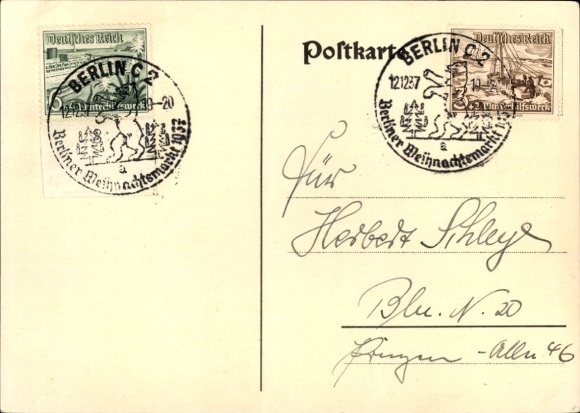 Deutsches Reich
BERLIN C 2
12.12.37 -20
Winterhilfswerk
Berliner Weihnachtsmarkt 1937
a
Postkarte
Deutsches Reich
BERLIN C 2
12.12.37
Winterhilfswerk
Berliner Weihnachtsmarkt 1937
a
Für
Herbert Schleye
Bln. N. 20
Prinzen-Allee 46